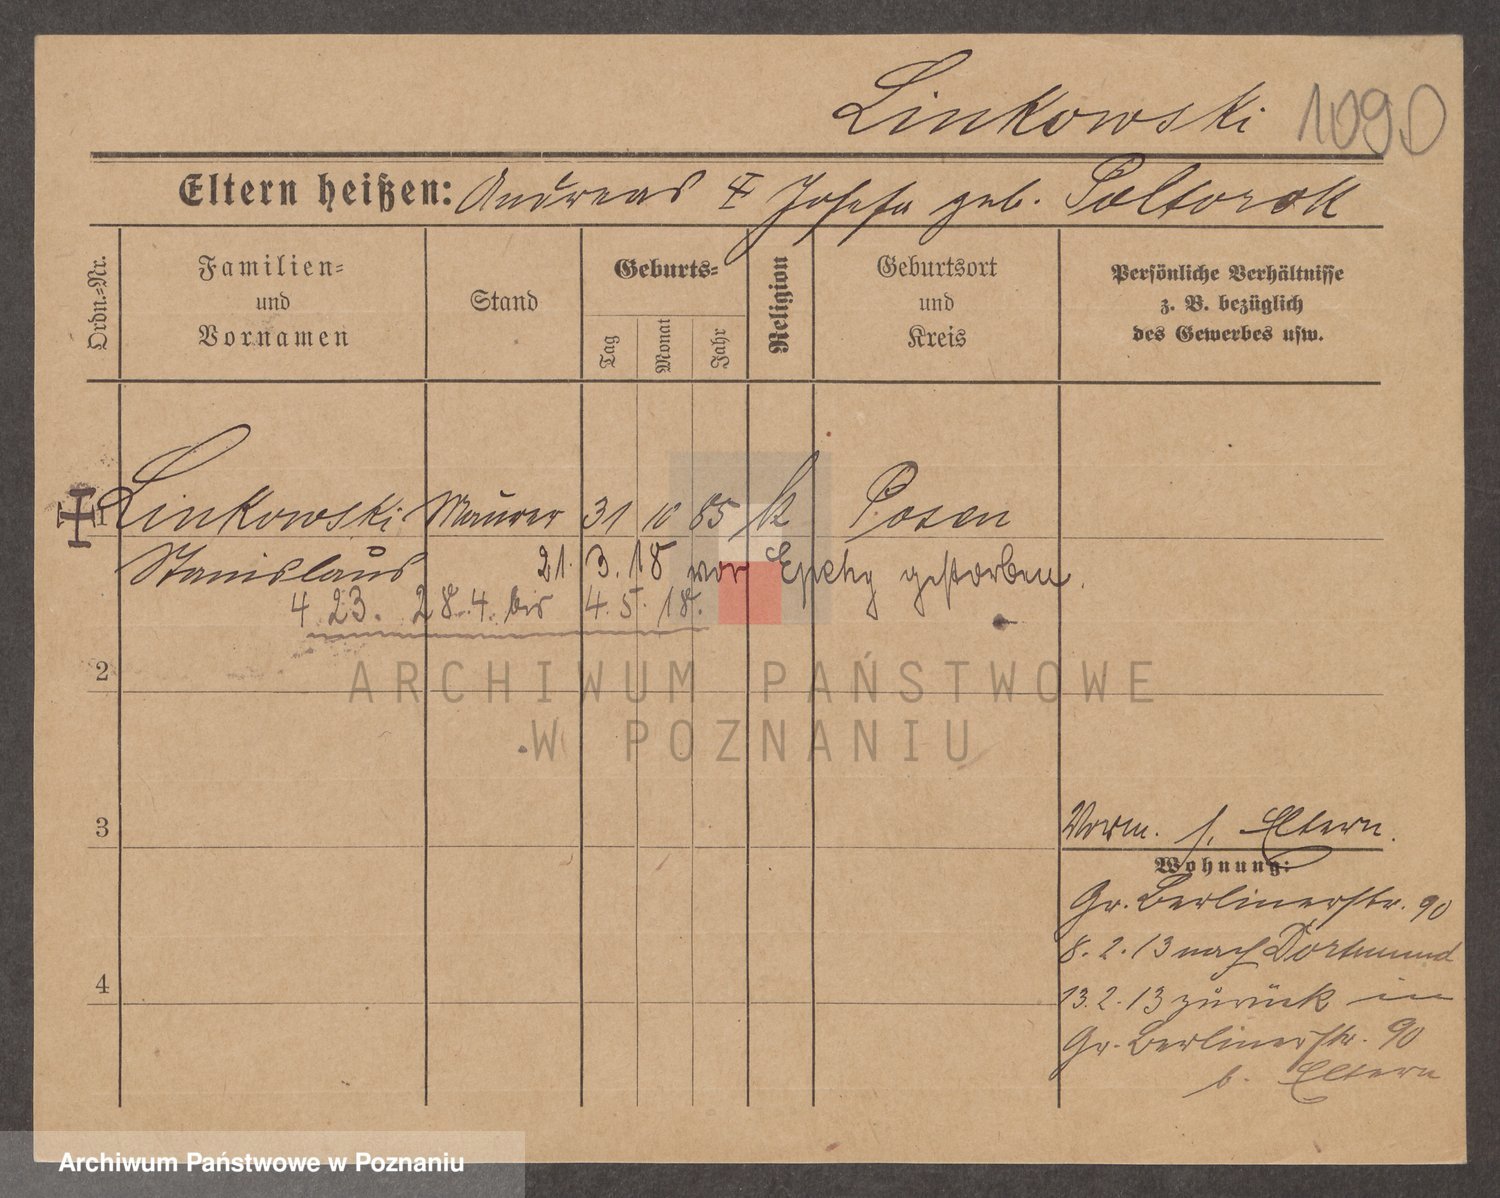 Linkowski 1090
Eltern heißen: Andreas ‡ Josefa geb. Poltorok
Ordn.-Nr.
Familien-
und
Vornamen
Stand
Geburts-
Tag
Monat
Jahr
Religion
Geburtsort
und
Kreis
Persönliche Verhältnisse
z. B. bezüglich
des Gewerbes usw.
1 Linkowski Maurer 31 10 85 k Posen
Stanislaus 21. 3. 18 vor gestorben.
4 23. 28. 4. bis 4. 5. 18.
2
ARCHIWUM PAŃSTWOWE
W POZNANIU
3
Vorm. s. Eltern.
Wohnung:
Gr. Berlinerstr. 90
8. 2. 13 nach Dortmund
4
13. 2. 13 zurück in
Gr. Berlinerstr. 90
b. Eltern
Archiwum Państwowe w Poznaniu